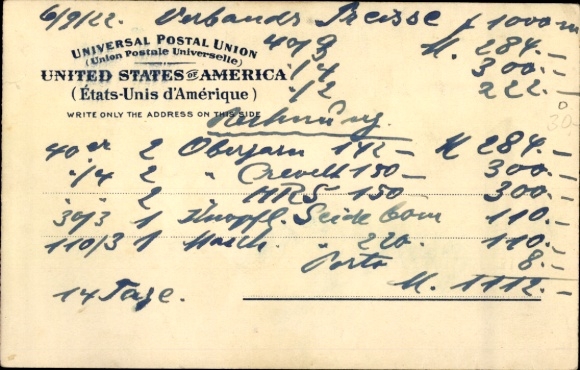 6/9/22. Verbands Preisse f 1000 m
40/3 M. 284.–
UNIVERSAL POSTAL UNION
(Union Postale Universelle)
·/4 300.–
UNITED STATES OF AMERICA
·/2 222.–
(États-Unis d'Amérique)
WRITE ONLY THE ADDRESS ON THIS SIDE
Rechnung.
40er 2 Obergarn 142– M 284.–
·/4 2 " 150– 300.–
2 " 150 300.–
30/3 1 Knopfl. Seide 110.–
110/3 1 Masch. " 220. 110.–
Porto 8.–
M. 1112.–
14 Tage.